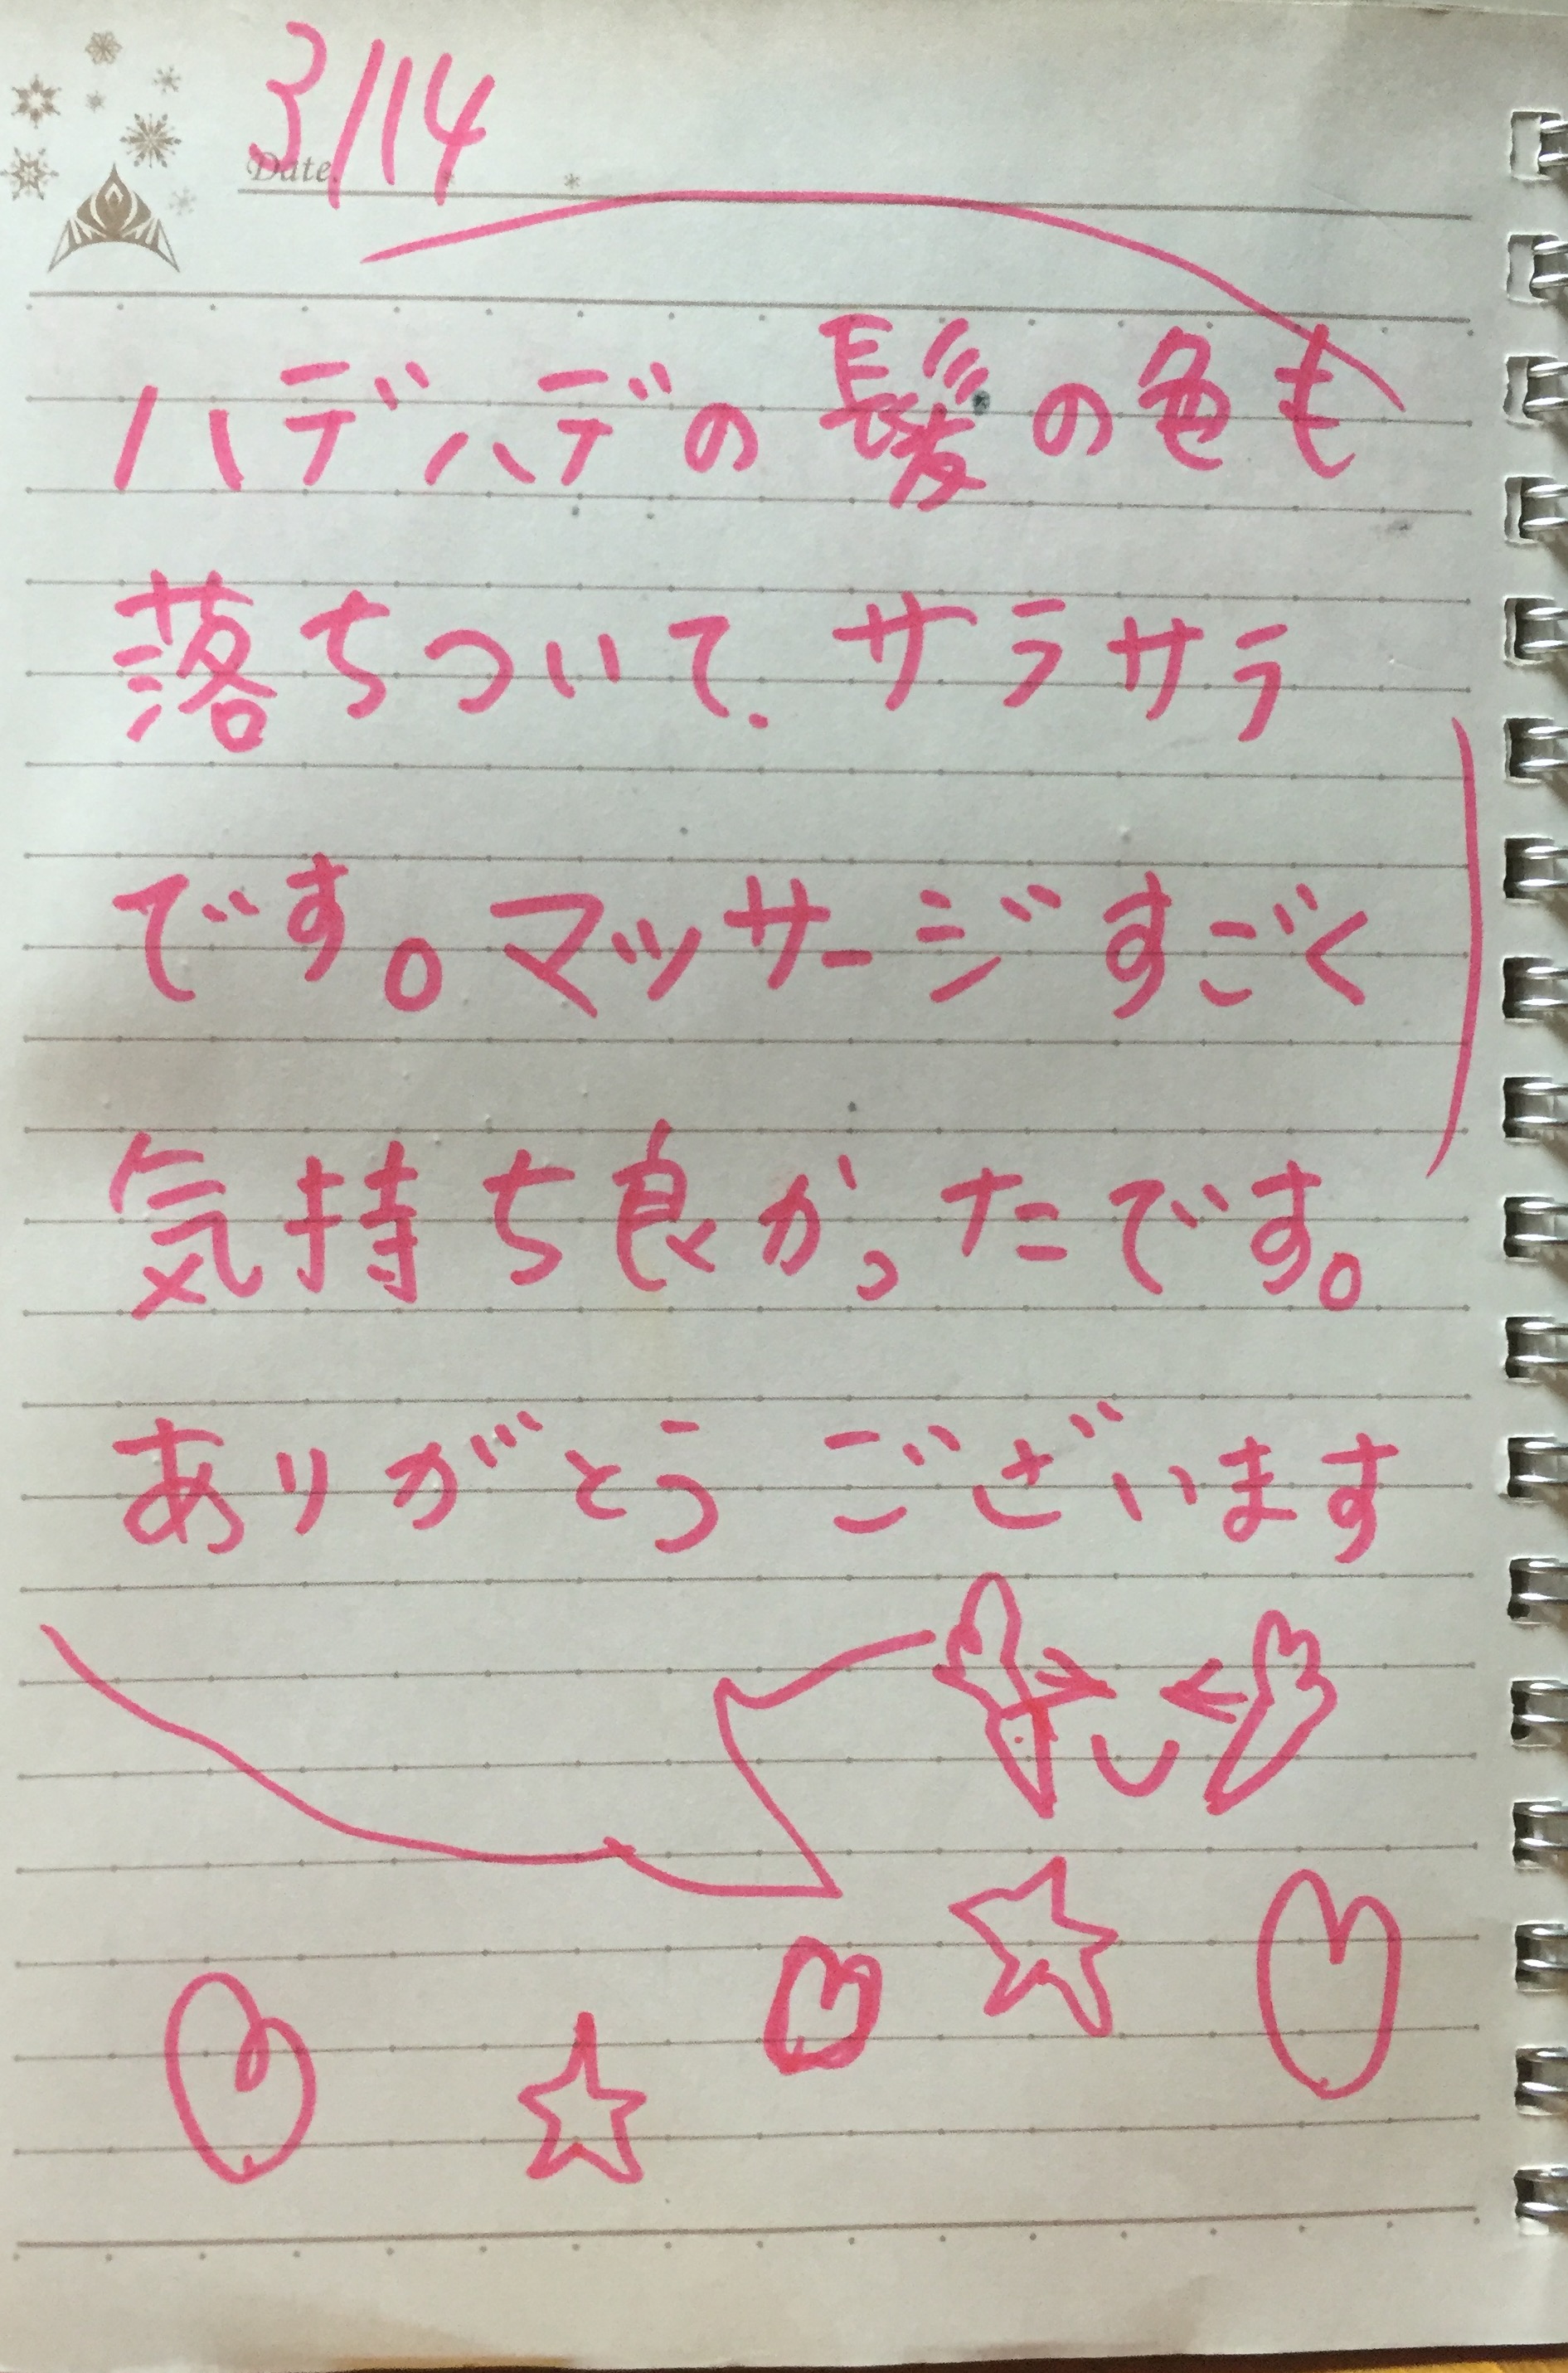 3/14
Date
ハデハデの髪の色も
落ちついて.サラサラ
です。マッサージすごく
気持ち良かったです。
ありがとうございます